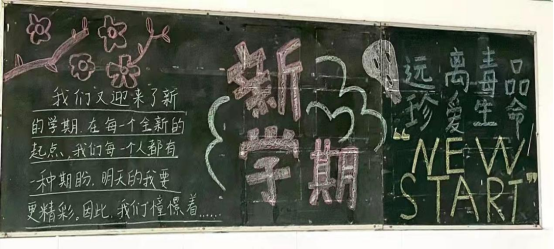 我们又迎来了新
的学期.在每一个全新的
起点,我们每一个人都有
一种期盼,明天的我要
更精彩。因此,我们憧憬着……
新
学期
远离毒品
珍爱生命
“NEW
START”